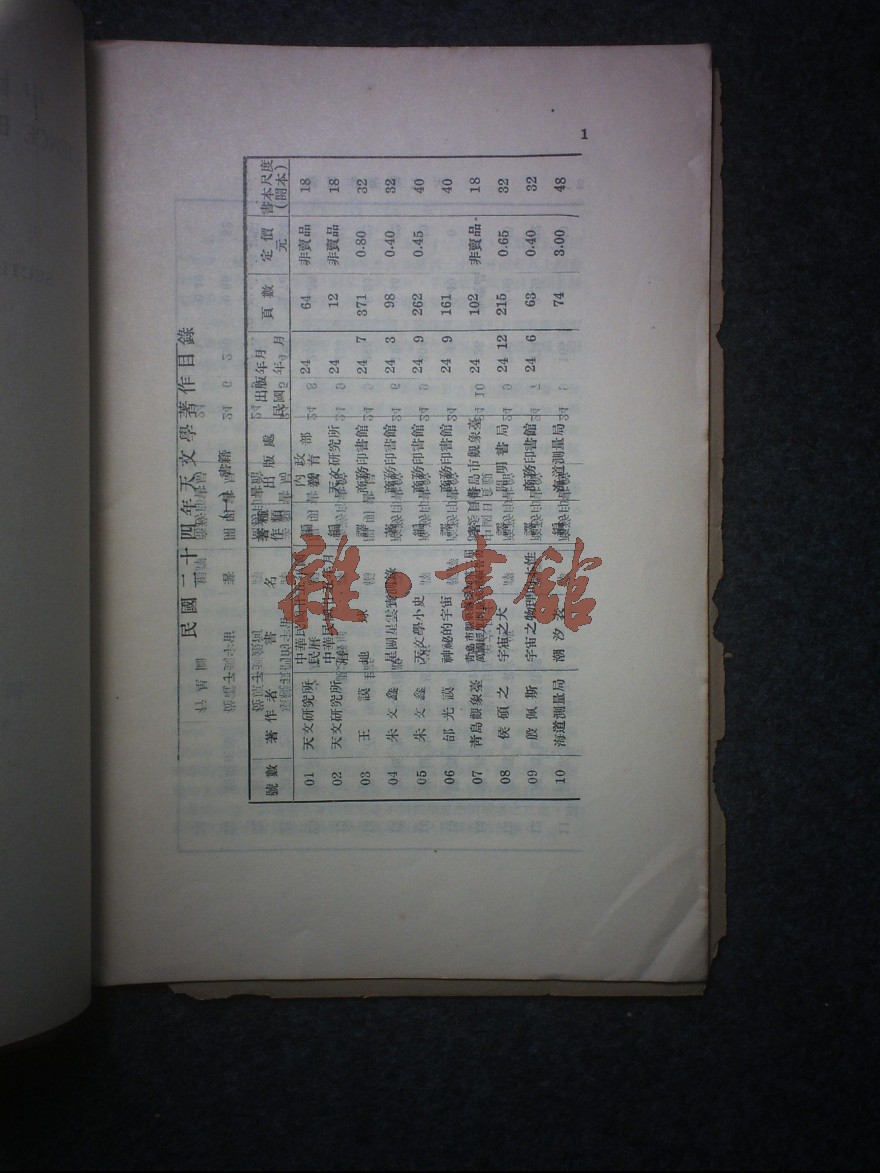 1
民國二十四年天文學著作目錄
(一) 書籍
號數 著作者 書名 著作種類 出版處 出版年月 民國 年 月 頁數 定價元 書本尺度(開本)
01 天文研究所 中華民國廿五年 民歷 編 內政教育部 24 64 非賣品 18
02 天文研究所 中華民國廿五年 編 天文研究所 24 12 非賣品 18
03 王謨 地球 譯 商務印書館 24 7 371 0.80 32
04 朱文鑫 星團星雲實測錄 著 商務印書館 24 3 98 0.40 32
05 朱文鑫 天文學小史 編 商務印書館 24 9 262 0.45 40
06 邰光謨 神祕的宇宙 譯 商務印書館 24 9 161 40
07 青島觀象臺 青島市觀象臺 24 102 非賣品 18
08 侯碩之 宇宙之大 譯 開明書局 24 12 215 0.65 32
09 殷佩斯 宇宙之物理的本性 譯 商務印書館 24 6 63 0.40 32
10 海道測量局 潮汐表 編 海道測量局 74 3.00 48
雍·書館